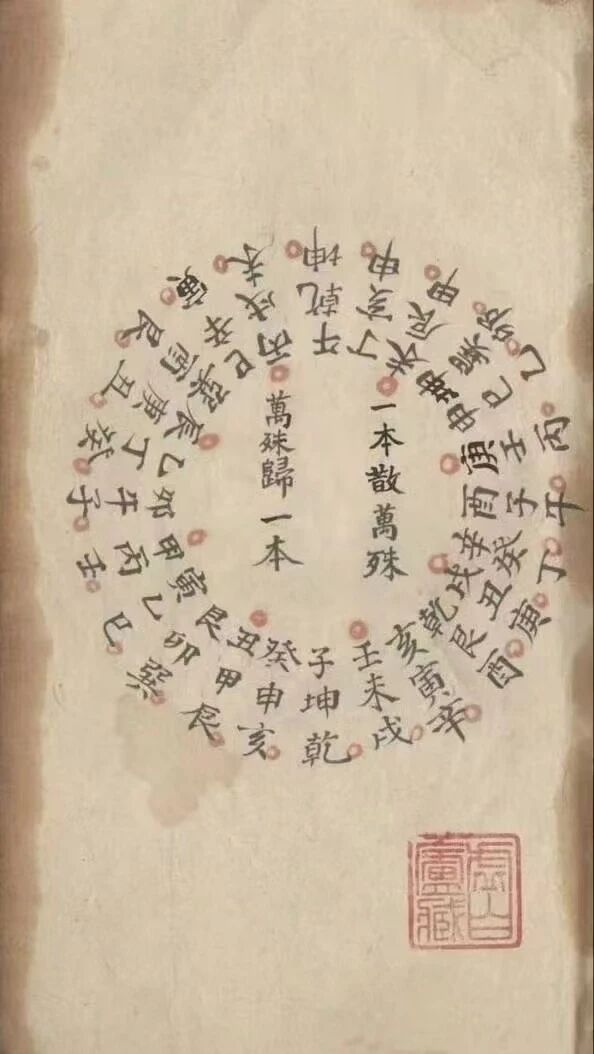 一本散萬殊
萬殊歸一本
子癸丑艮寅甲卯乙辰巽巳丙午丁未坤申庚酉辛戌乾亥壬
坤申甲卯乙丙午丁庚酉辛戌乾亥辰巽巳壬子癸丑艮寅未
乾亥辰巽巳壬子癸丑艮寅未坤申甲卯乙丙午丁庚酉辛戌
虛白廬藏